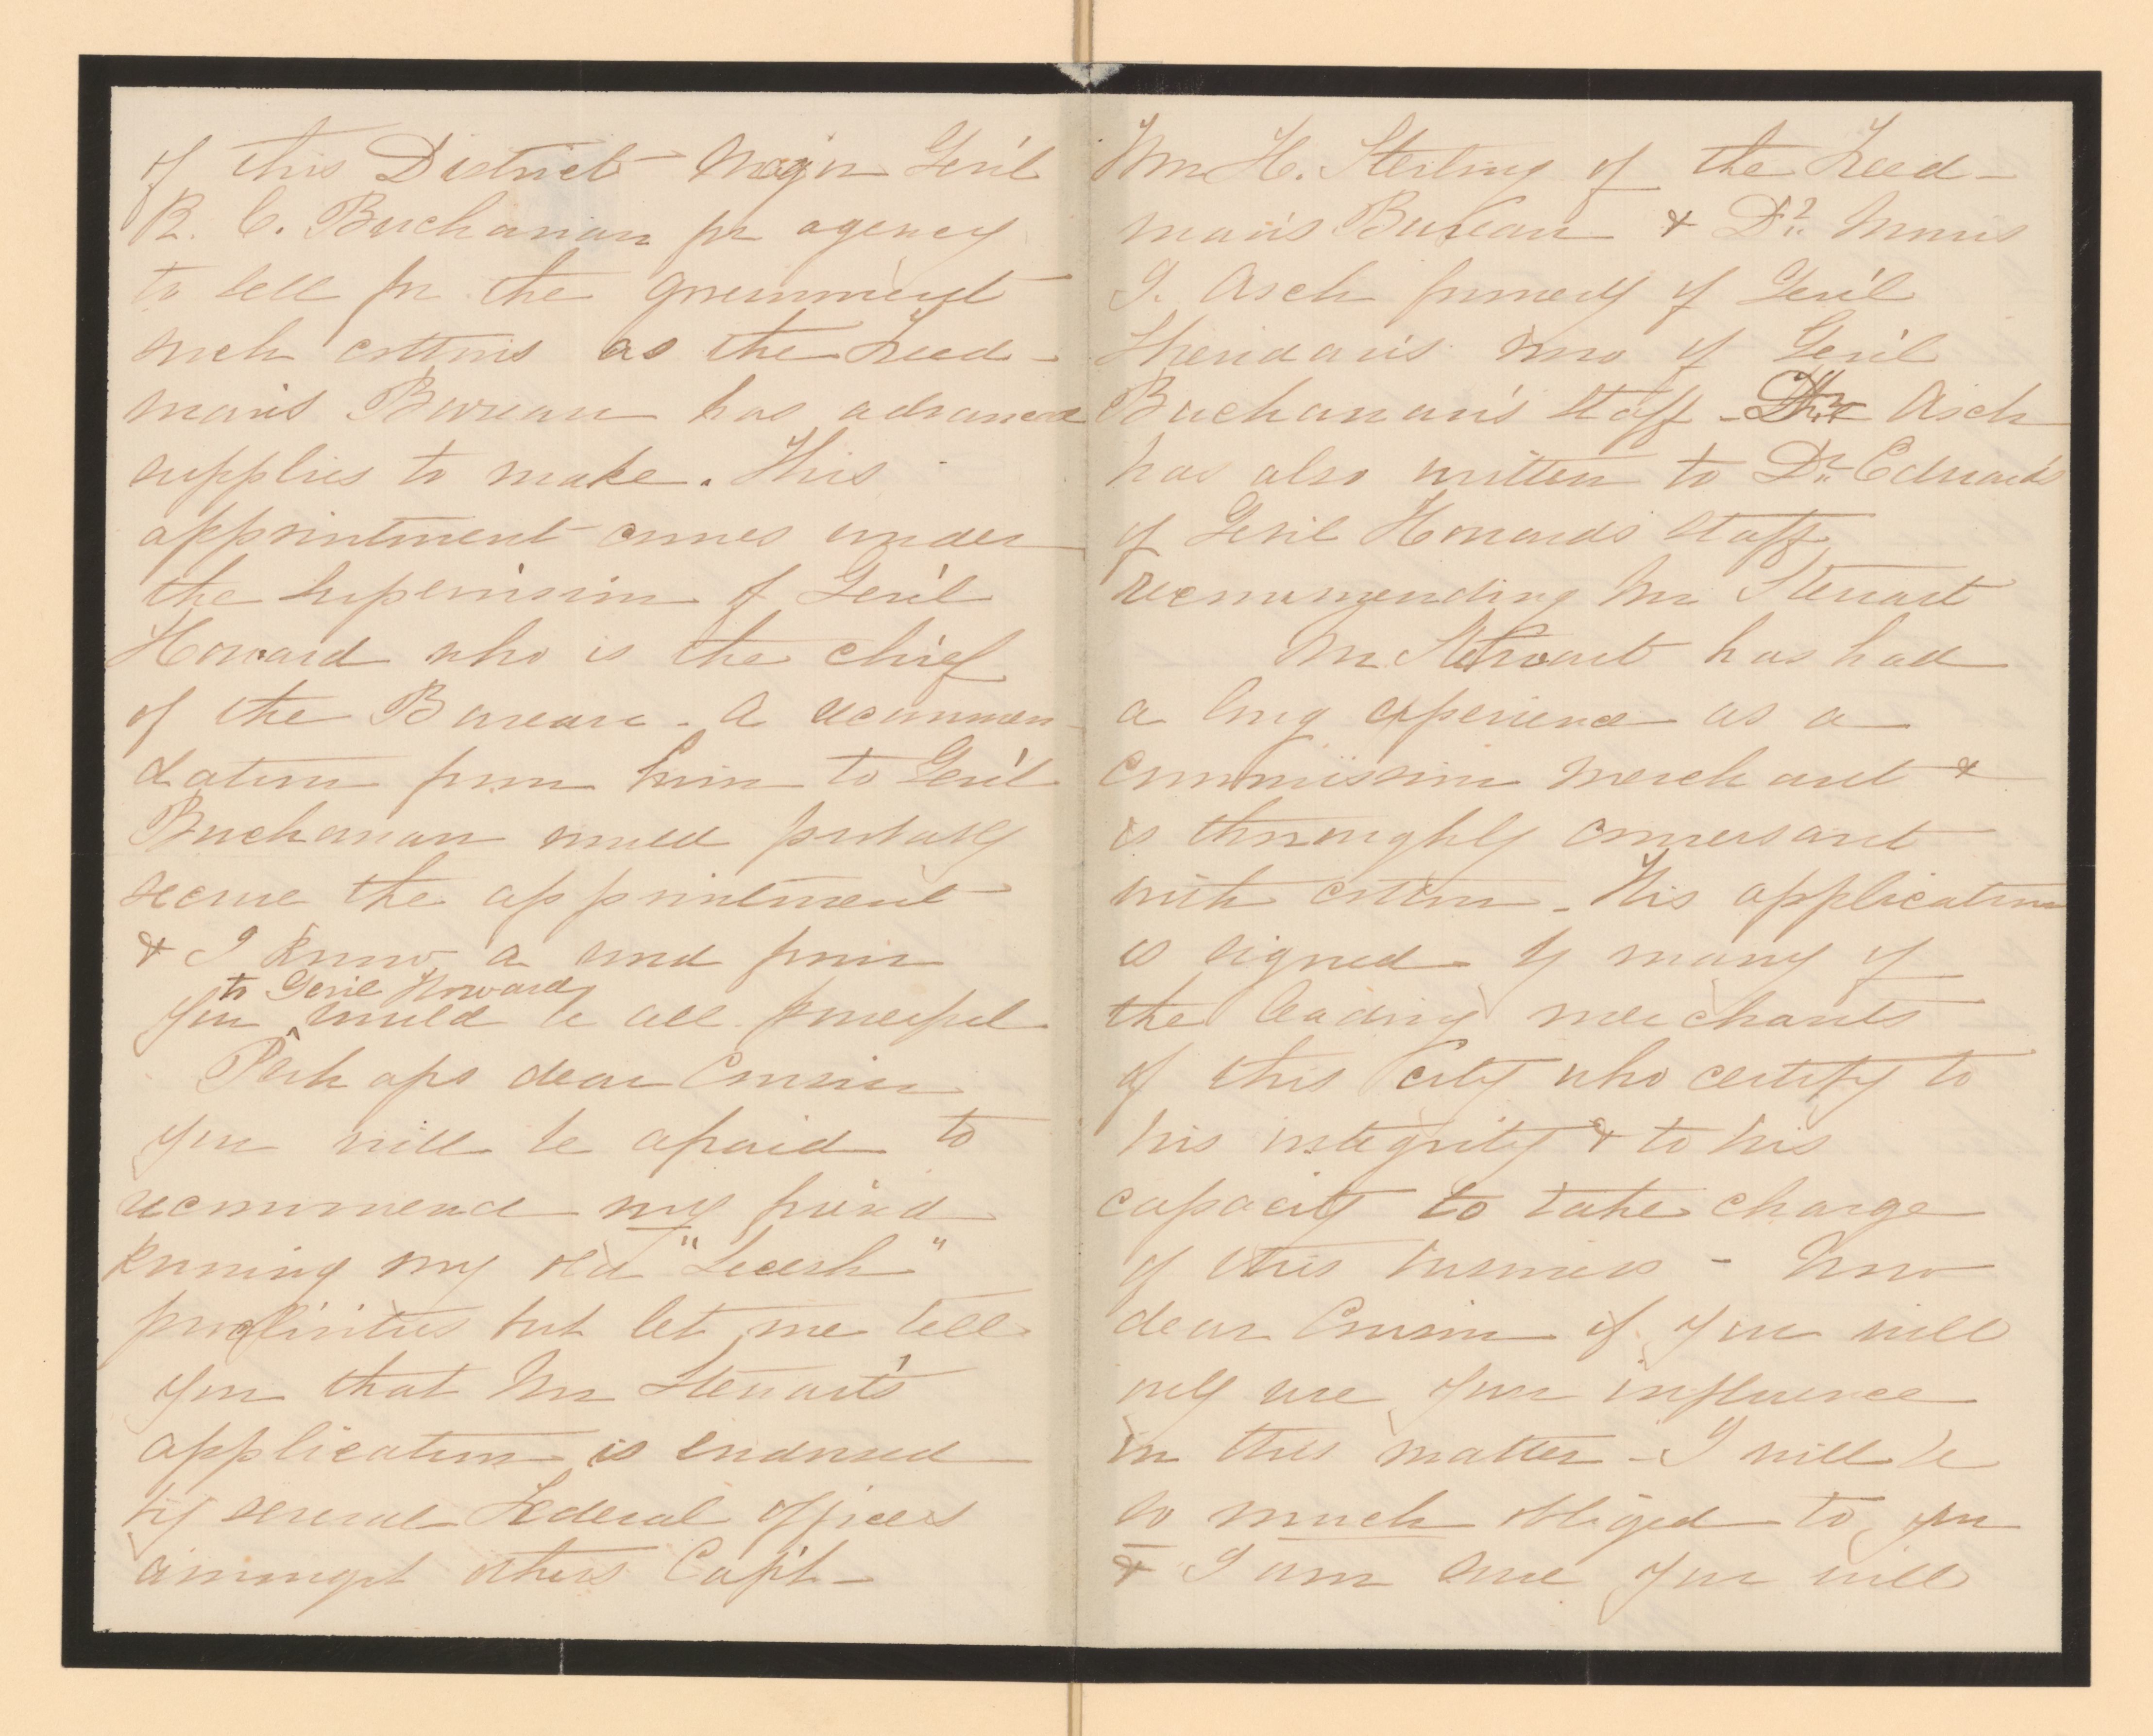 of this District Major Gen'l
R. C. Buchanan for agency
to sell for the government
such cottons as the Freed-
man's Bureau has advanced
supplies to make. This
appointment comes under
the supervision of Gen'l
Howard who is the chief
of the Bureau - A recommen-
dation from him to Gen'l
Buchanan would probably
secure the appointment
& I know a word from
to Gen'l Howard
you ^ would be all powerful
Perhaps dear Cousin
you will be afraid to
recommend my friend
knowing my old "Secesh"
proclivities but let me tell
you that Mr Stewart's
application is endorsed
by several Federal officers
amongst others Capt -
Wm H. Sterling of the Freed-
man's Bureau & Dr. Morris
J. Asch formerly of Gen'l
Sheridan's now of Gen'l
Buchanan's staff - Dr Asch
has also written to Dr. Edwards
of Gen'l Howards staff
recommending Mr Stewart
Mr Stewart has had
a long experience as a
commission merchant &
is thoroughly conversant
with cotton - His application
is signed by many of
the leading merchants
of this City who certify to
his integrity & to his
capacity to take charge
of this business - Now
dear Cousin if you will
only use your influence
in this matter - I will be
so much obliged to you
& I am sure you will